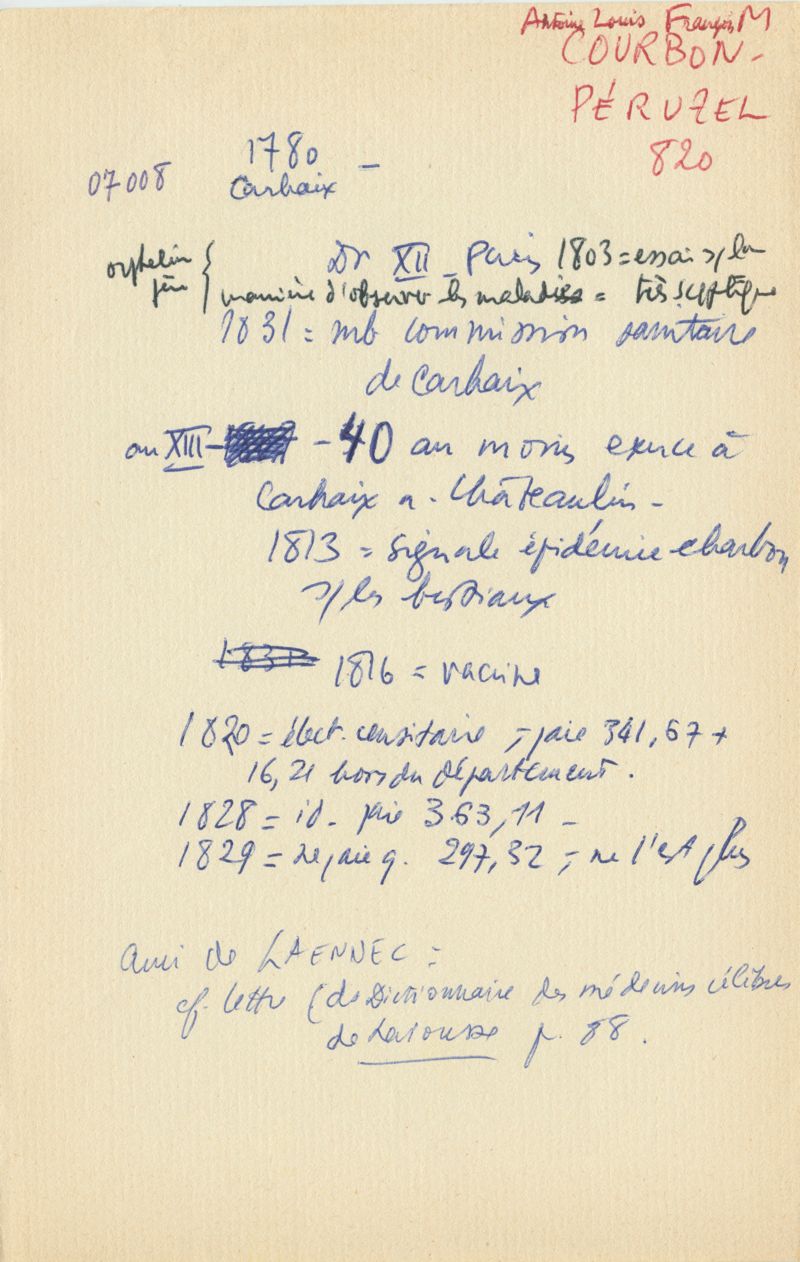 Antoine Louis François M
COURBON-
PÉRUZEL
820
1780 -
07008 Carhaix
orphelin père { Dr XII - Paris 1803 = essai s/ la
manière d'observer les maladies = très sceptique
1831 = mb commission sanitaire
de Carhaix
an XIII - - 40 au moins exerce à
Carhaix a. Châteaulin -
1813 = signale épidémie charbon
s/ les bestiaux
1831 1816 = vaccine
1820 = élect. censitaire ; paie 341,67 +
16,21 hors du département.
1828 = id - paie 363,11 -
1829 = ne paie q. 297,32 ; ne l'est plus
Ami de LAENNEC =
cf. lettre (de Dictionnaire des médecins célèbres
de Larousse p. 88.